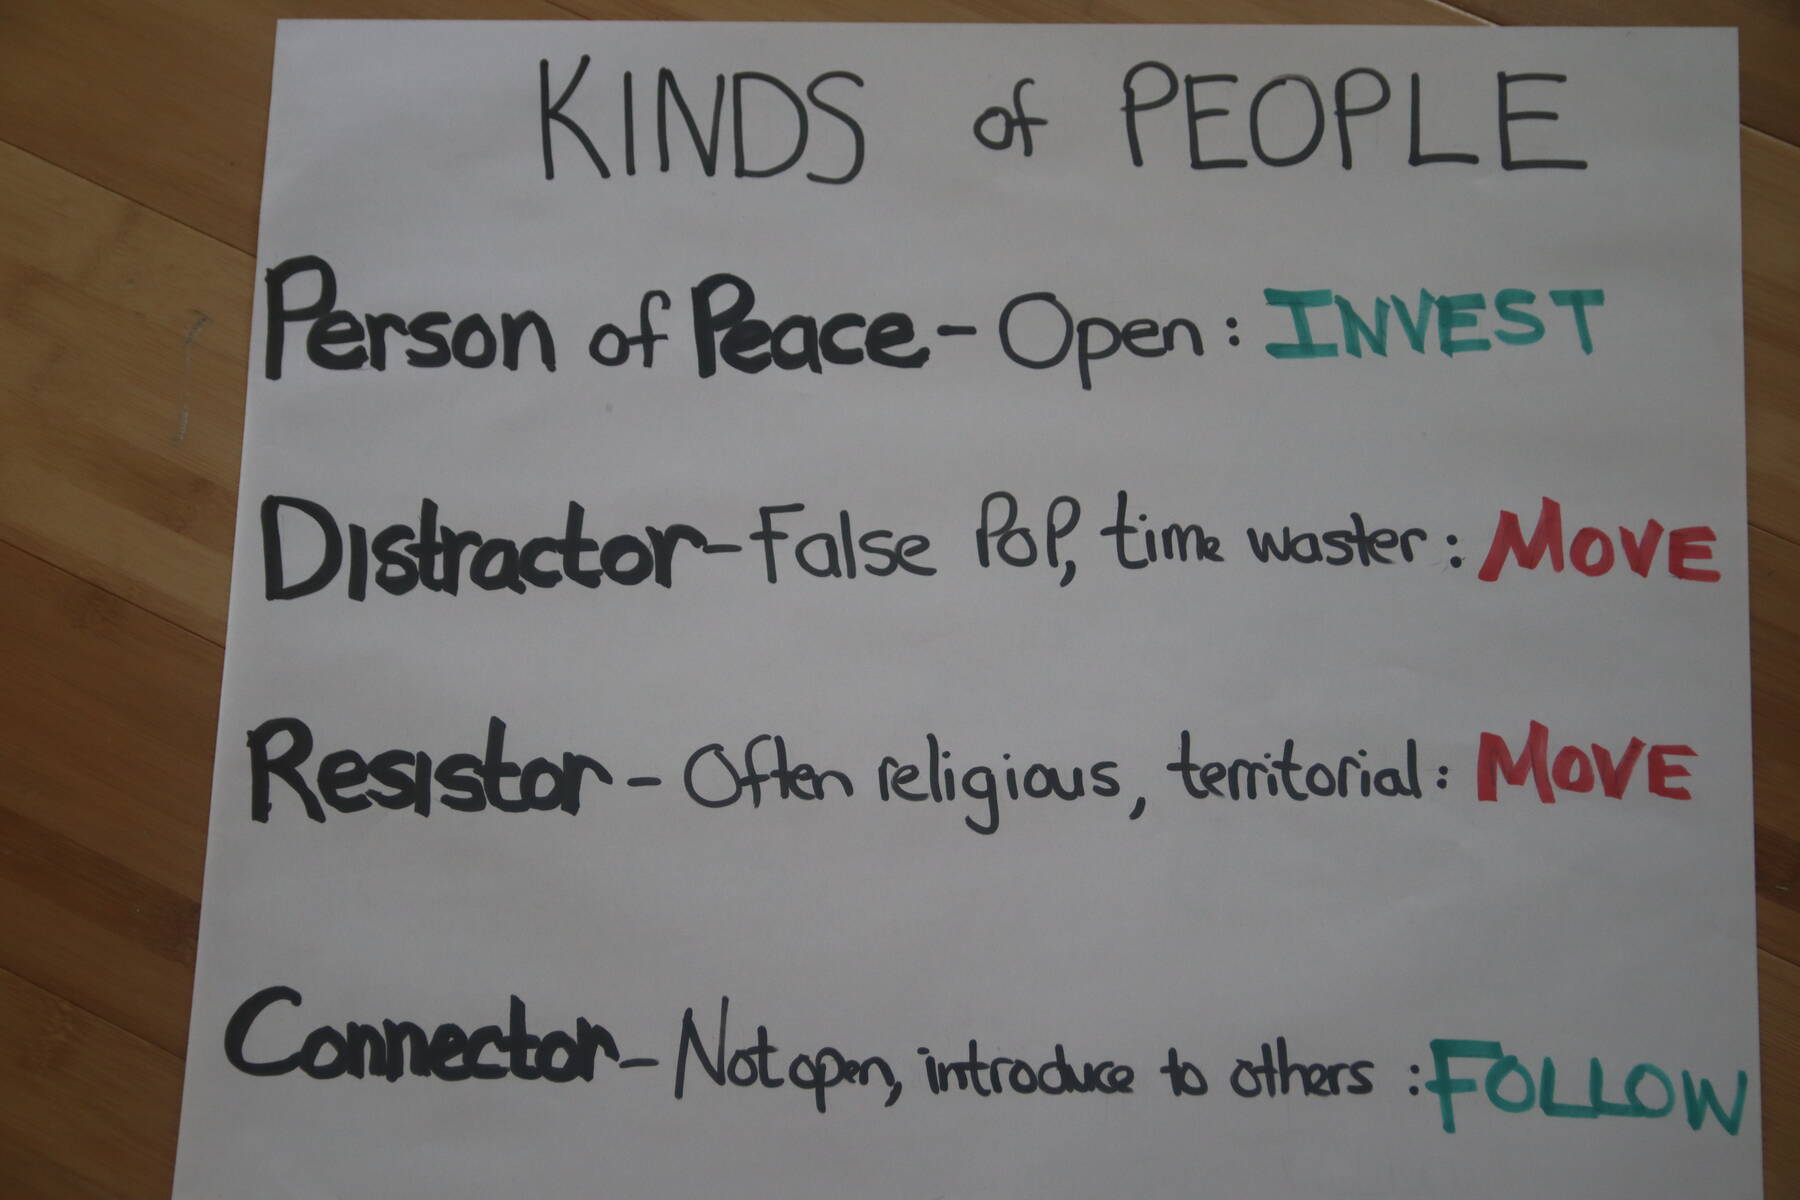 KINDS of PEOPLE
Person of Peace - Open : INVEST
Distractor - False PoP, time waster : MOVE
Resistor - Often religious, territorial : MOVE
Connector - Not open, introduce to others : FOLLOW